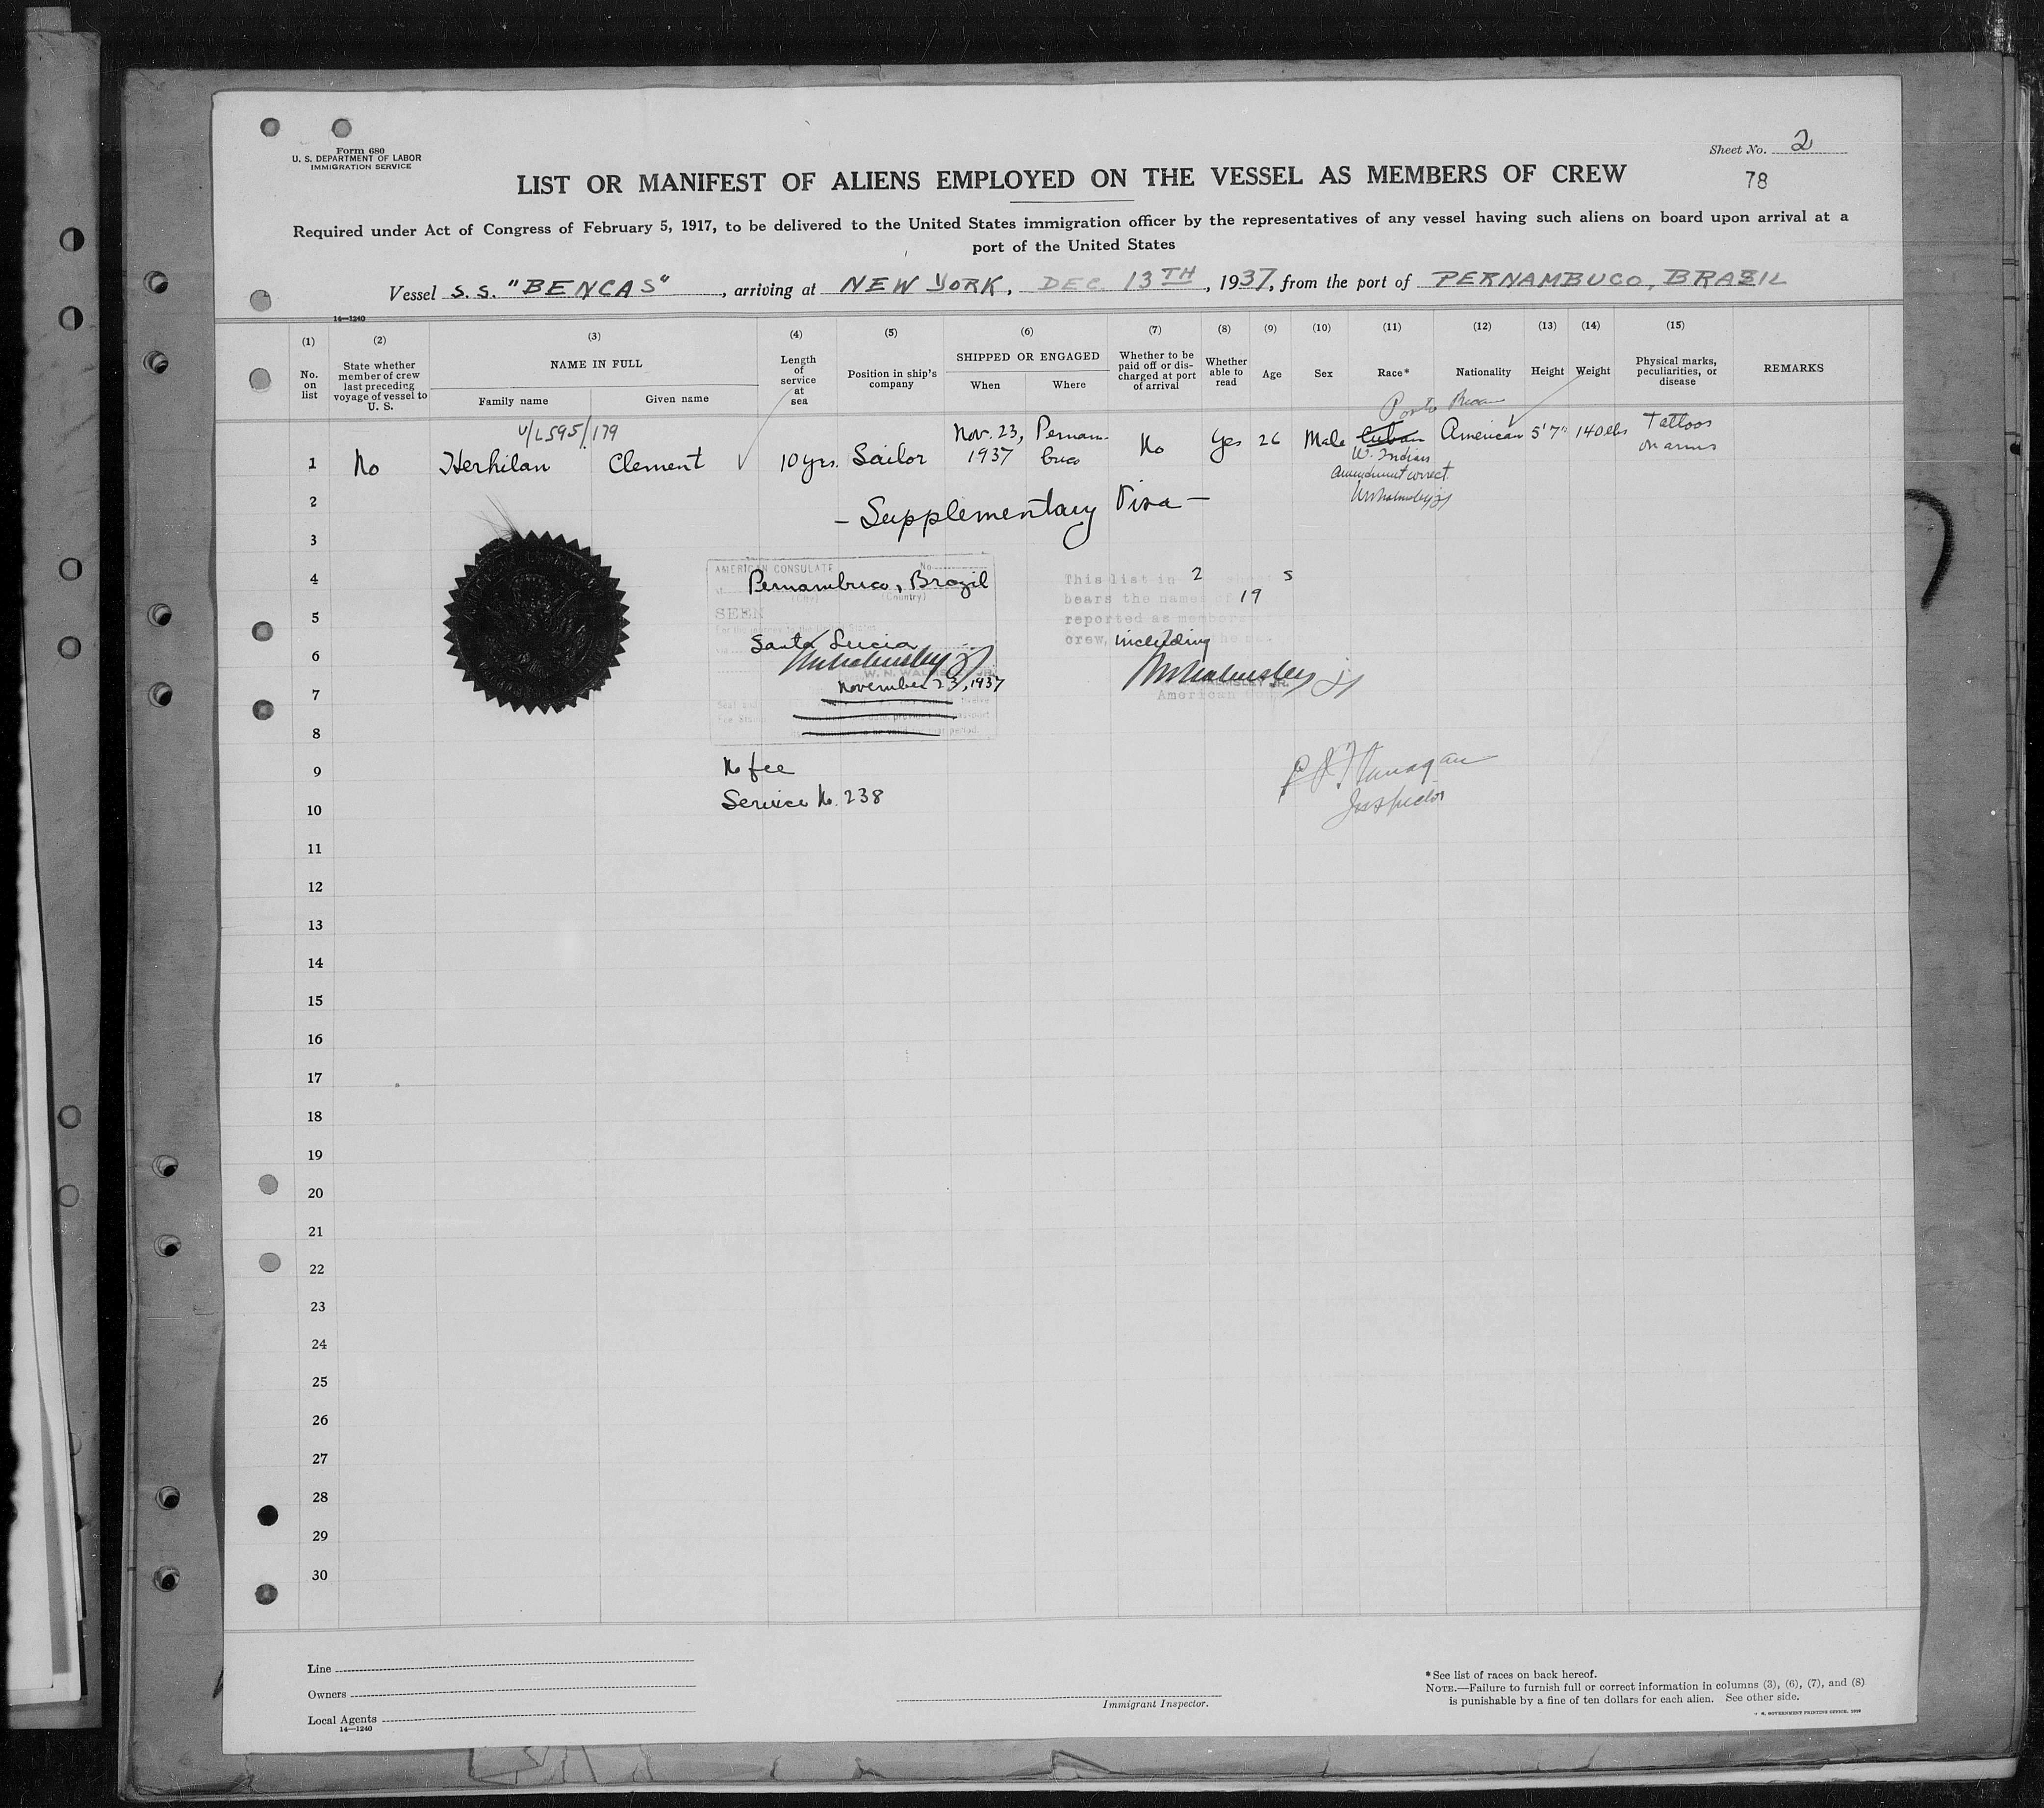 Form 680
U. S. DEPARTMENT OF LABOR
IMMIGRATION SERVICE
Sheet No. 2
78
LIST OR MANIFEST OF ALIENS EMPLOYED ON THE VESSEL AS MEMBERS OF CREW
Required under Act of Congress of February 5, 1917, to be delivered to the United States immigration officer by the representatives of any vessel having such aliens on board upon arrival at a
port of the United States
Vessel S.S. "BENCAS", arriving at NEW YORK, DEC 13TH, 1937, from the port of PERNAMBUCO, BRASIL
14—1240
(1) (2) (3) (4) (5) (6) (7) (8) (9) (10) (11) (12) (13) (14) (15)
No. on list
State whether member of crew last preceding voyage of vessel to U. S.
NAME IN FULL
Family name
Given name
Length of service at sea
Position in ship's company
SHIPPED OR ENGAGED
When
Where
Whether to be paid off or discharged at port of arrival
Whether able to read
Age
Sex
Race*
Nationality
Height
Weight
Physical marks, peculiarities, or disease
REMARKS
Porto Rican
V/L595/179
1 No Herhilan Clement 10 yrs. Sailor Nov. 23, 1937 Pernambuco No Yes 26 Male Cuban American 5'7" 140 lbs Tattoos on arms
W. Indies
amendment correct
2
- Supplementary Visa -
3
AMERICAN CONSULATE No.
4
Pernambuco, Brazil
(Country)
This list in 2 sheets
bears the names of 19
5
SEEN
reported as members of
crew, including
6
Santa Lucia
W. N. WALMSLEY JR.
7
November 23, 1937
American
8
9
No fee
10
Service No. 238
P J Flanagan
Inspector
11
12
13
14
15
16
17
18
19
20
21
22
23
24
25
26
27
28
29
30
Line
Owners
Local Agents
14—1240
Immigrant Inspector.
*See list of races on back hereof.
NOTE.—Failure to furnish full or correct information in columns (3), (6), (7), and (8)
is punishable by a fine of ten dollars for each alien. See other side.